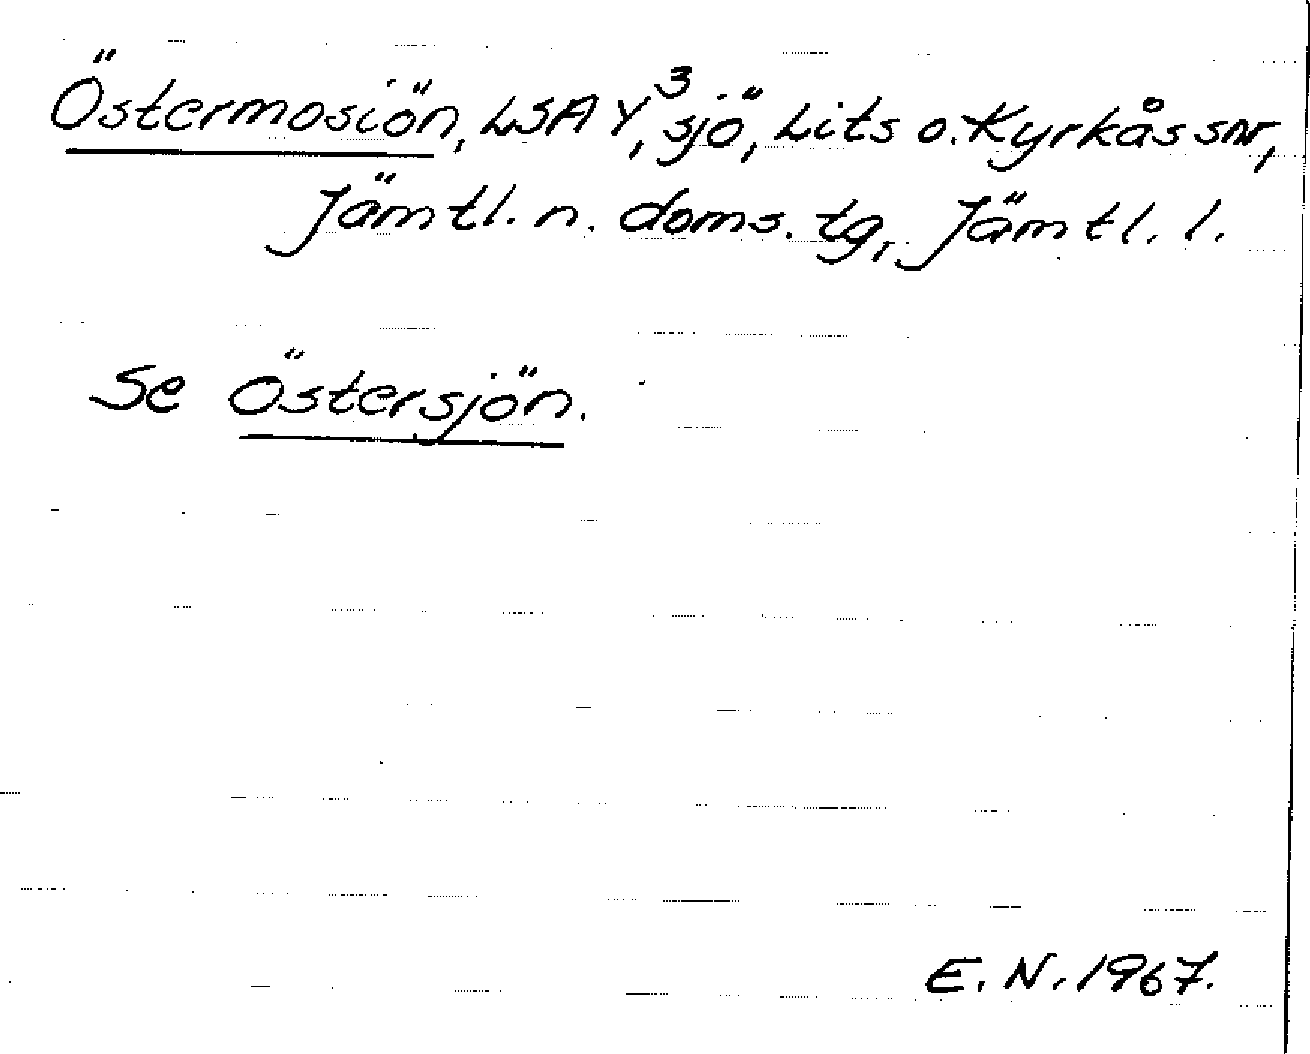 Östermosiön, LSA Y³, sjö, Lits o. Kyrkås snr,
Jämtl. n. doms. tg, Jämtl. l.
Se Östersjön.
E. N. 1967.